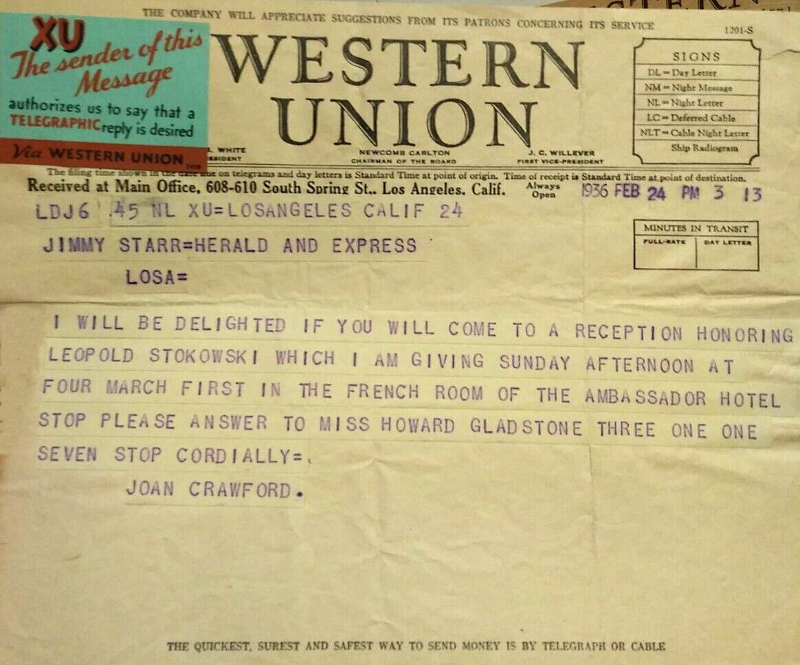 THE COMPANY WILL APPRECIATE SUGGESTIONS FROM ITS PATRONS CONCERNING ITS SERVICE
1201-S
XU
The sender of this
Message
authorizes us to say that a
TELEGRAPHIC reply is desired
Via WESTERN UNION
WESTERN
UNION
WHITE
NEWCOMB CARLTON
CHAIRMAN OF THE BOARD
J. C. WILLEVER
FIRST VICE-PRESIDENT
SIGNS
DL = Day Letter
NM = Night Message
NL = Night Letter
LC = Deferred Cable
NLT = Cable Night Letter
Ship Radiogram
The filing time shown in the date line on telegrams and day letters is Standard Time at point of origin. Time of receipt is Standard Time at point of destination.
Received at Main Office, 608-610 South Spring St., Los Angeles, Calif. Always Open
1936 FEB 24 PM 3 13
LDJ6 .45 NL XU=LOSANGELES CALIF 24
MINUTES IN TRANSIT
FULL-RATE DAY LETTER
JIMMY STARR=HERALD AND EXPRESS
LOSA=
I WILL BE DELIGHTED IF YOU WILL COME TO A RECEPTION HONORING
LEOPOLD STOKOWSKI WHICH I AM GIVING SUNDAY AFTERNOON AT
FOUR MARCH FIRST IN THE FRENCH ROOM OF THE AMBASSADOR HOTEL
STOP PLEASE ANSWER TO MISS HOWARD GLADSTONE THREE ONE ONE
SEVEN STOP CORDIALLY=.
JOAN CRAWFORD.
THE QUICKEST, SUREST AND SAFEST WAY TO SEND MONEY IS BY TELEGRAPH OR CABLE